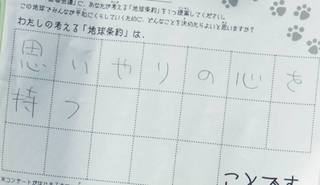 に、あなたが考える「地球条約」を1つ提案してください。
この地球でみんなが平和にくらしていくために、どんなことを決めたらよいと思いますか?
わたしの考える「地球条約」は、
思いやりの心を
持つ
ことです